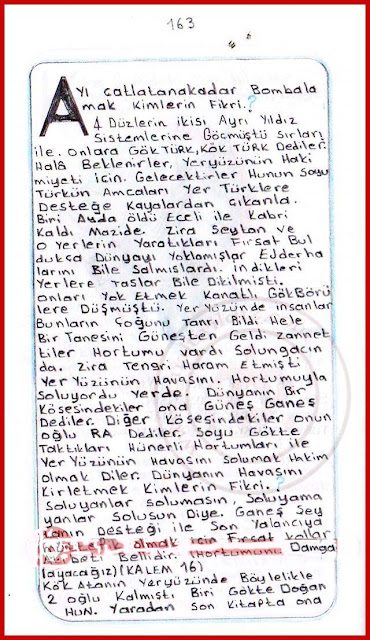 163
AYI catlatanakadar Bombala
mak Kimlerin Fikri.?
4 Düzlerin ikisi Ayrı Yıldız
Sistemlerine Göcmüştü sırları
ile. onlara GÖKTÜRK, KÖK TÜRK Dediler.
Halâ Beklenirler, Yeryüzünün Haki
miyeti için. Gelecektirler Hunun Soyu
Türkün Amcaları Yer Türklere
Desteğe Kayalardan çıkanla.
Biri Ayda öldü Eceli ile Kabri
Kaldı Mazide. Zira Şeytan ve
o Yerlerin Yaratıkları Fırsat Bul
dukca Dünyayı Yoklamışlar Ejderha
larını Bile Salmıslardı. indikleri
Yerlere Taslar Bile Dikilmisti.
onları Yok Etmek Kanatlı GökBörü
lere Düşmüştü. Yer Yüzünde insanlar
Bunların Çoğunu Tanrı Bildi Hele
Bir Tanesini Güneşten Geldi zannet
tiler Hortumu vardı Solungacın
da. Zira Tengri Haram Etmişti
Yer Yüzünün Havasını. Hortumuyla
Soluyordu Yerde. Dünyanın Bir
Kösesindekiler ona Güneş Ganeş
Dediler. Diğer Kösesindekiler onun
oğlu RA Dediler. Soyu Gökte
Taktıkları Hünerli Hortumları ile
Yer Yüzünün Havasını solumak Hakim
olmak Diler. Dünyanın Havasını
Kirletmek Kimlerin Fikri.?
Soluyanlar solumasın, Soluyama
yanlar Solusun Diye. Ganeş Şey
tanın Desteği ile Son Yalancıya
müttefik olmak için Fırsat kollar
Bellidir. (Hortumunu Damga
layacağız) (KALEM 16)
Kök Atanın Yeryüzünde Böylelikle
2 oğlu Kalmıştı Biri Gökte Doğan
HUN. Yaradan son kitapta ona